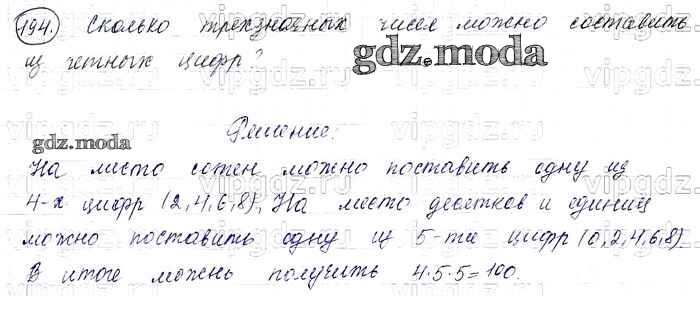 194. Сколько трехзначных чисел можно составить
из четных цифр?
gdz.moda
Решение:
gdz.moda
На место сотен можно поставить одну из
4-х цифр (2,4,6,8). На место десятков и единиц
можно поставить одну из 5-ти цифр (0,2,4,6,8)
В итоге можнь получить 4·5·5=100.
vipgdz.ru